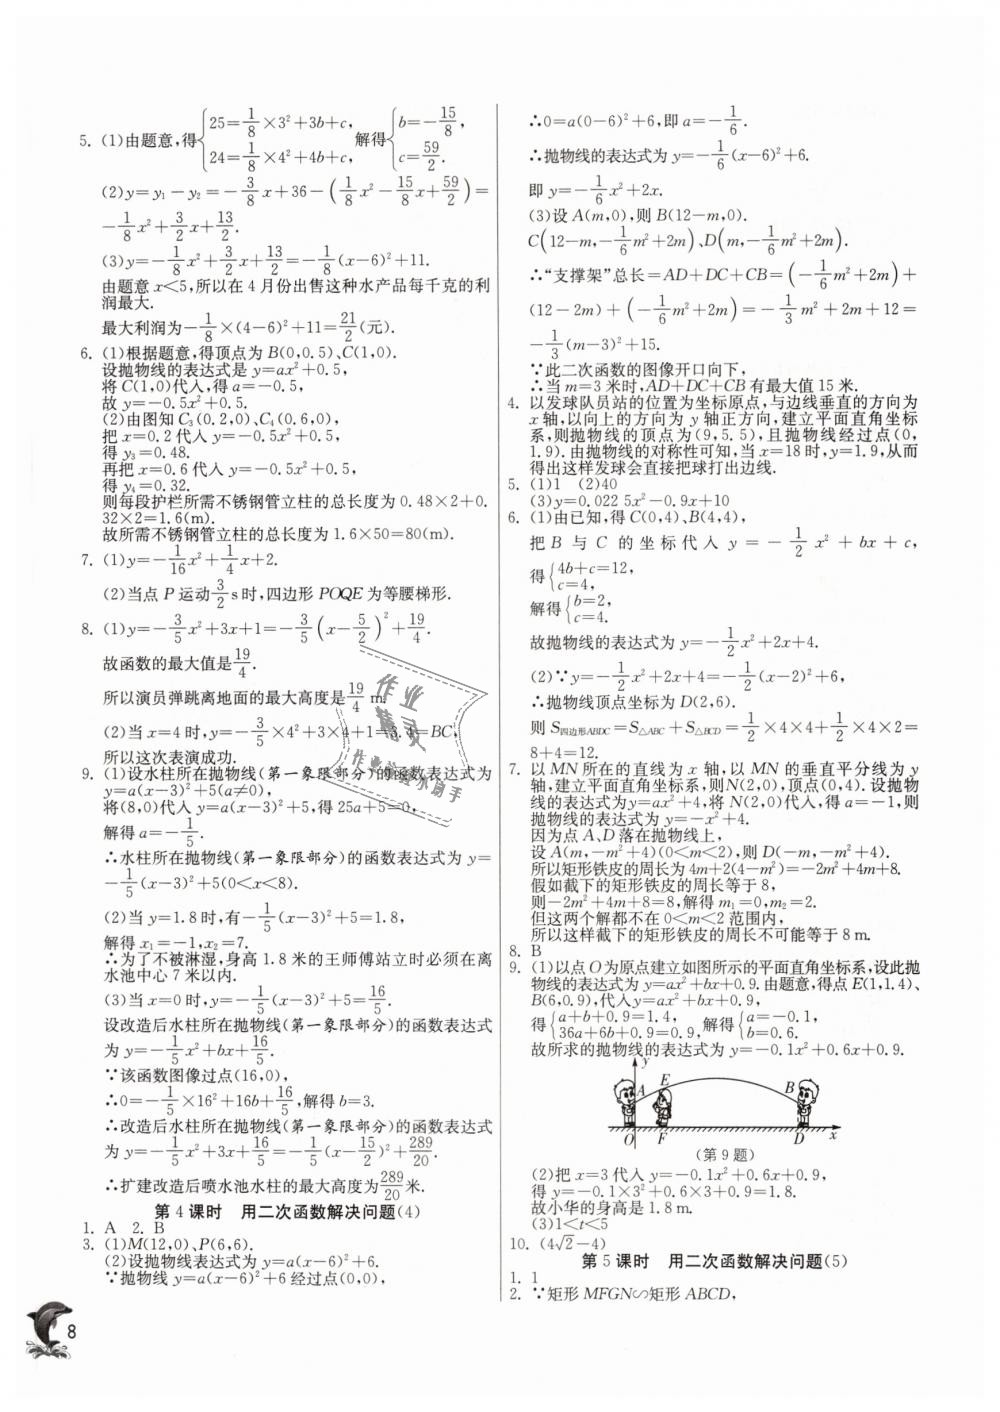 5. (1)由题意,得{25=1/8×3²+3b+c, 24=1/8×4²+4b+c, 解得{b=-15/8, c=59/2.
(2)y=y₁-y₂=-3/8x+36-(1/8x²-15/8x+59/2)=
-1/8x²+3/2x+13/2.
(3)y=-1/8x²+3/2x+13/2=-1/8(x-6)²+11.
由题意x<5,所以在4月份出售这种水产品每千克的利
润最大.
最大利润为-1/8×(4-6)²+11=21/2(元).
6. (1)根据题意,得顶点为B(0,0.5)、C(1,0).
设抛物线的表达式是y=ax²+0.5,
将C(1,0)代入,得a=-0.5,
故y=-0.5x²+0.5.
(2)由图知C₃(0.2,0)、C₄(0.6,0),
把x=0.2代入y=-0.5x²+0.5,
得y₃=0.48.
再把x=0.6代入y=-0.5x²+0.5,
得y₄=0.32.
则每段护栏所需不锈钢管立柱的总长度为0.48×2+0.
32×2=1.6(m).
故所需不锈钢管立柱的总长度为1.6×50=80(m).
7. (1)y=-1/16x²+1/4x+2.
(2)当点P运动3/2s时,四边形POQE为等腰梯形.
8. (1)y=-3/5x²+3x+1=-3/5(x-5/2)²+19/4.
故函数的最大值是19/4.
所以演员弹跳离地面的最大高度是19/4 m.
(2)当x=4时,y=-3/5×4²+3×4+1=3.4=BC,
所以这次表演成功.
9. (1)设水柱所在抛物线(第一象限部分)的函数表达式为
y=a(x-3)²+5(a≠0),
将(8,0)代入y=a(x-3)²+5,得25a+5=0,
解得a=-1/5.
∴水柱所在抛物线(第一象限部分)的函数表达式为y=
-1/5(x-3)²+5(0<x<8).
(2)当y=1.8时,有-1/5(x-3)²+5=1.8,
解得x₁=-1,x₂=7.
∴为了不被淋湿,身高1.8米的王师傅站立时必须在离
水池中心7米以内.
(3)当x=0时,y=-1/5(x-3)²+5=16/5.
设改造后水柱所在抛物线(第一象限部分)的函数表达式
为y=-1/5x²+bx+16/5.
∵该函数图像过点(16,0),
∴0=-1/5×16²+16b+16/5,解得b=3.
∴改造后水柱所在抛物线(第一象限部分)的函数表达式
为y=-1/5x²+3x+16/5=-1/5(x-15/2)²+289/20.
∴扩建改造后喷水池水柱的最大高度为289/20米.
第4课时 用二次函数解决问题(4)
1. A 2. B
3. (1)M(12,0)、P(6,6).
(2)设抛物线表达式为y=a(x-6)²+6.
∵抛物线y=a(x-6)²+6经过点(0,0),
8
∴0=a(0-6)²+6,即a=-1/6.
∴抛物线的表达式为y=-1/6(x-6)²+6.
即y=-1/6x²+2x.
(3)设A(m,0),则B(12-m,0).
C(12-m,-1/6m²+2m)、D(m,-1/6m²+2m).
∴“支撑架”总长=AD+DC+CB=(-1/6m²+2m)+
(12-2m)+(-1/6m²+2m)=-1/3m²+2m+12=
-1/3(m-3)²+15.
∵此二次函数的图像开口向下,
∴当m=3米时,AD+DC+CB有最大值15米.
4. 以发球队员站的位置为坐标原点,与边线垂直的方向为
x轴,以向上的方向为y轴正方向,建立平面直角坐标
系,则抛物线的顶点为(9,5.5),且抛物线经过点(0,
1.9).由抛物线的对称性可知,当x=18时,y=1.9,从而
得出这样发球会直接把球打出边线.
5. (1)1 (2)40
(3)y=0.022 5x²-0.9x+10
6. (1)由已知,得C(0,4)、B(4,4),
把B与C的坐标代入y=-1/2x²+bx+c,
得{4b+c=12, c=4,
解得{b=2, c=4.
故抛物线的表达式为y=-1/2x²+2x+4.
(2)∵y=-1/2x²+2x+4=-1/2(x-2)²+6,
∴抛物线顶点坐标为D(2,6).
则S四边形ABDC=S△ABC+S△BCD=1/2×4×4+1/2×4×2=
8+4=12.
7. 以MN所在的直线为x轴,以MN的垂直平分线为y
轴,建立平面直角坐标系,则N(2,0),顶点(0,4).设抛物
线的表达式为y=ax²+4,将N(2,0)代入,得a=-1,则
抛物线的表达式为y=-x²+4.
因为点A、D落在抛物线上,
设A(m,-m²+4)(0<m<2),则D(-m,-m²+4).
所以矩形铁皮的周长为4m+2(4-m²)=-2m²+4m+8.
假如截下的矩形铁皮的周长等于8,
则-2m²+4m+8=8,解得m₁=0,m₂=2.
但这两个解都不在0<m<2范围内,
所以这样截下的矩形铁皮的周长不可能等于8 m.
8. B
9. (1)以点O为原点建立如图所示的平面直角坐标系,设此抛
物线的表达式为y=ax²+bx+0.9.由题意,得点E(1,1.4)、
B(6,0.9),代入y=ax²+bx+0.9,
得{a+b+0.9=1.4, 36a+6b+0.9=0.9, 解得{a=-0.1, b=0.6.
故所求的抛物线的表达式为y=-0.1x²+0.6x+0.9.
y
A E B
O F D x
(第9题)
(2)把x=3代入y=-0.1x²+0.6x+0.9,
得y=-0.1×3²+0.6×3+0.9=1.8.
故小华的身高是1.8 m.
(3)1<t<5
10. (4√2-4)
第5课时 用二次函数解决问题(5)
1. 1
2. ∵矩形MFGN∽矩形ABCD,
作业
精灵